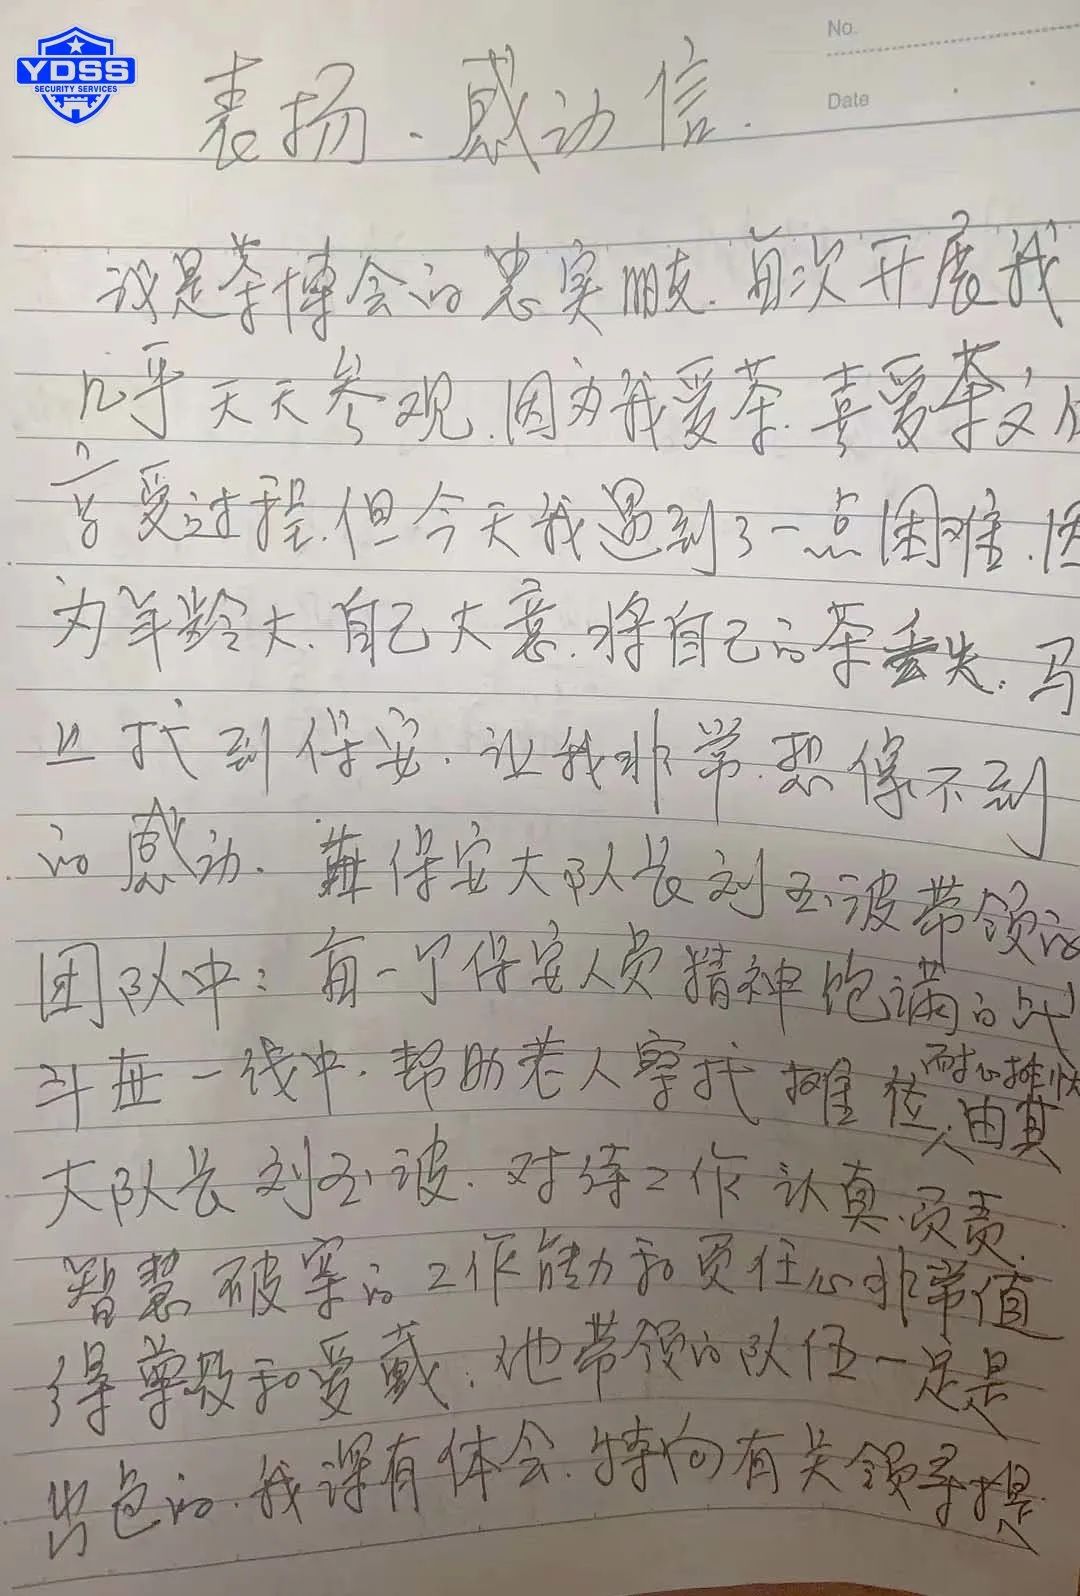 YDSS
SECURITY SERVICES
No.
Date
表扬、感动信.
我是茶博会的忠实朋友.每次开展我
几乎天天参观.因为我爱茶.喜爱茶文化
享受过程.但今天我遇到了一点困难.因
为年龄大.自己大意.将自己的茶丢失.马
上找到保安.让我非常.想像不到
的感动.在保安大队长刘玉波带领的
团队中:每一个保安人员精神饱满的战
斗在一线中.帮助老人寻找摊位.由其
耐心排忧
大队长刘玉波.对待工作认真.负责.
智慧破案的工作能力和责任心非常值
得尊敬和爱戴.他带领的队伍一定是
出色的.我深有体会.特向有关领导提